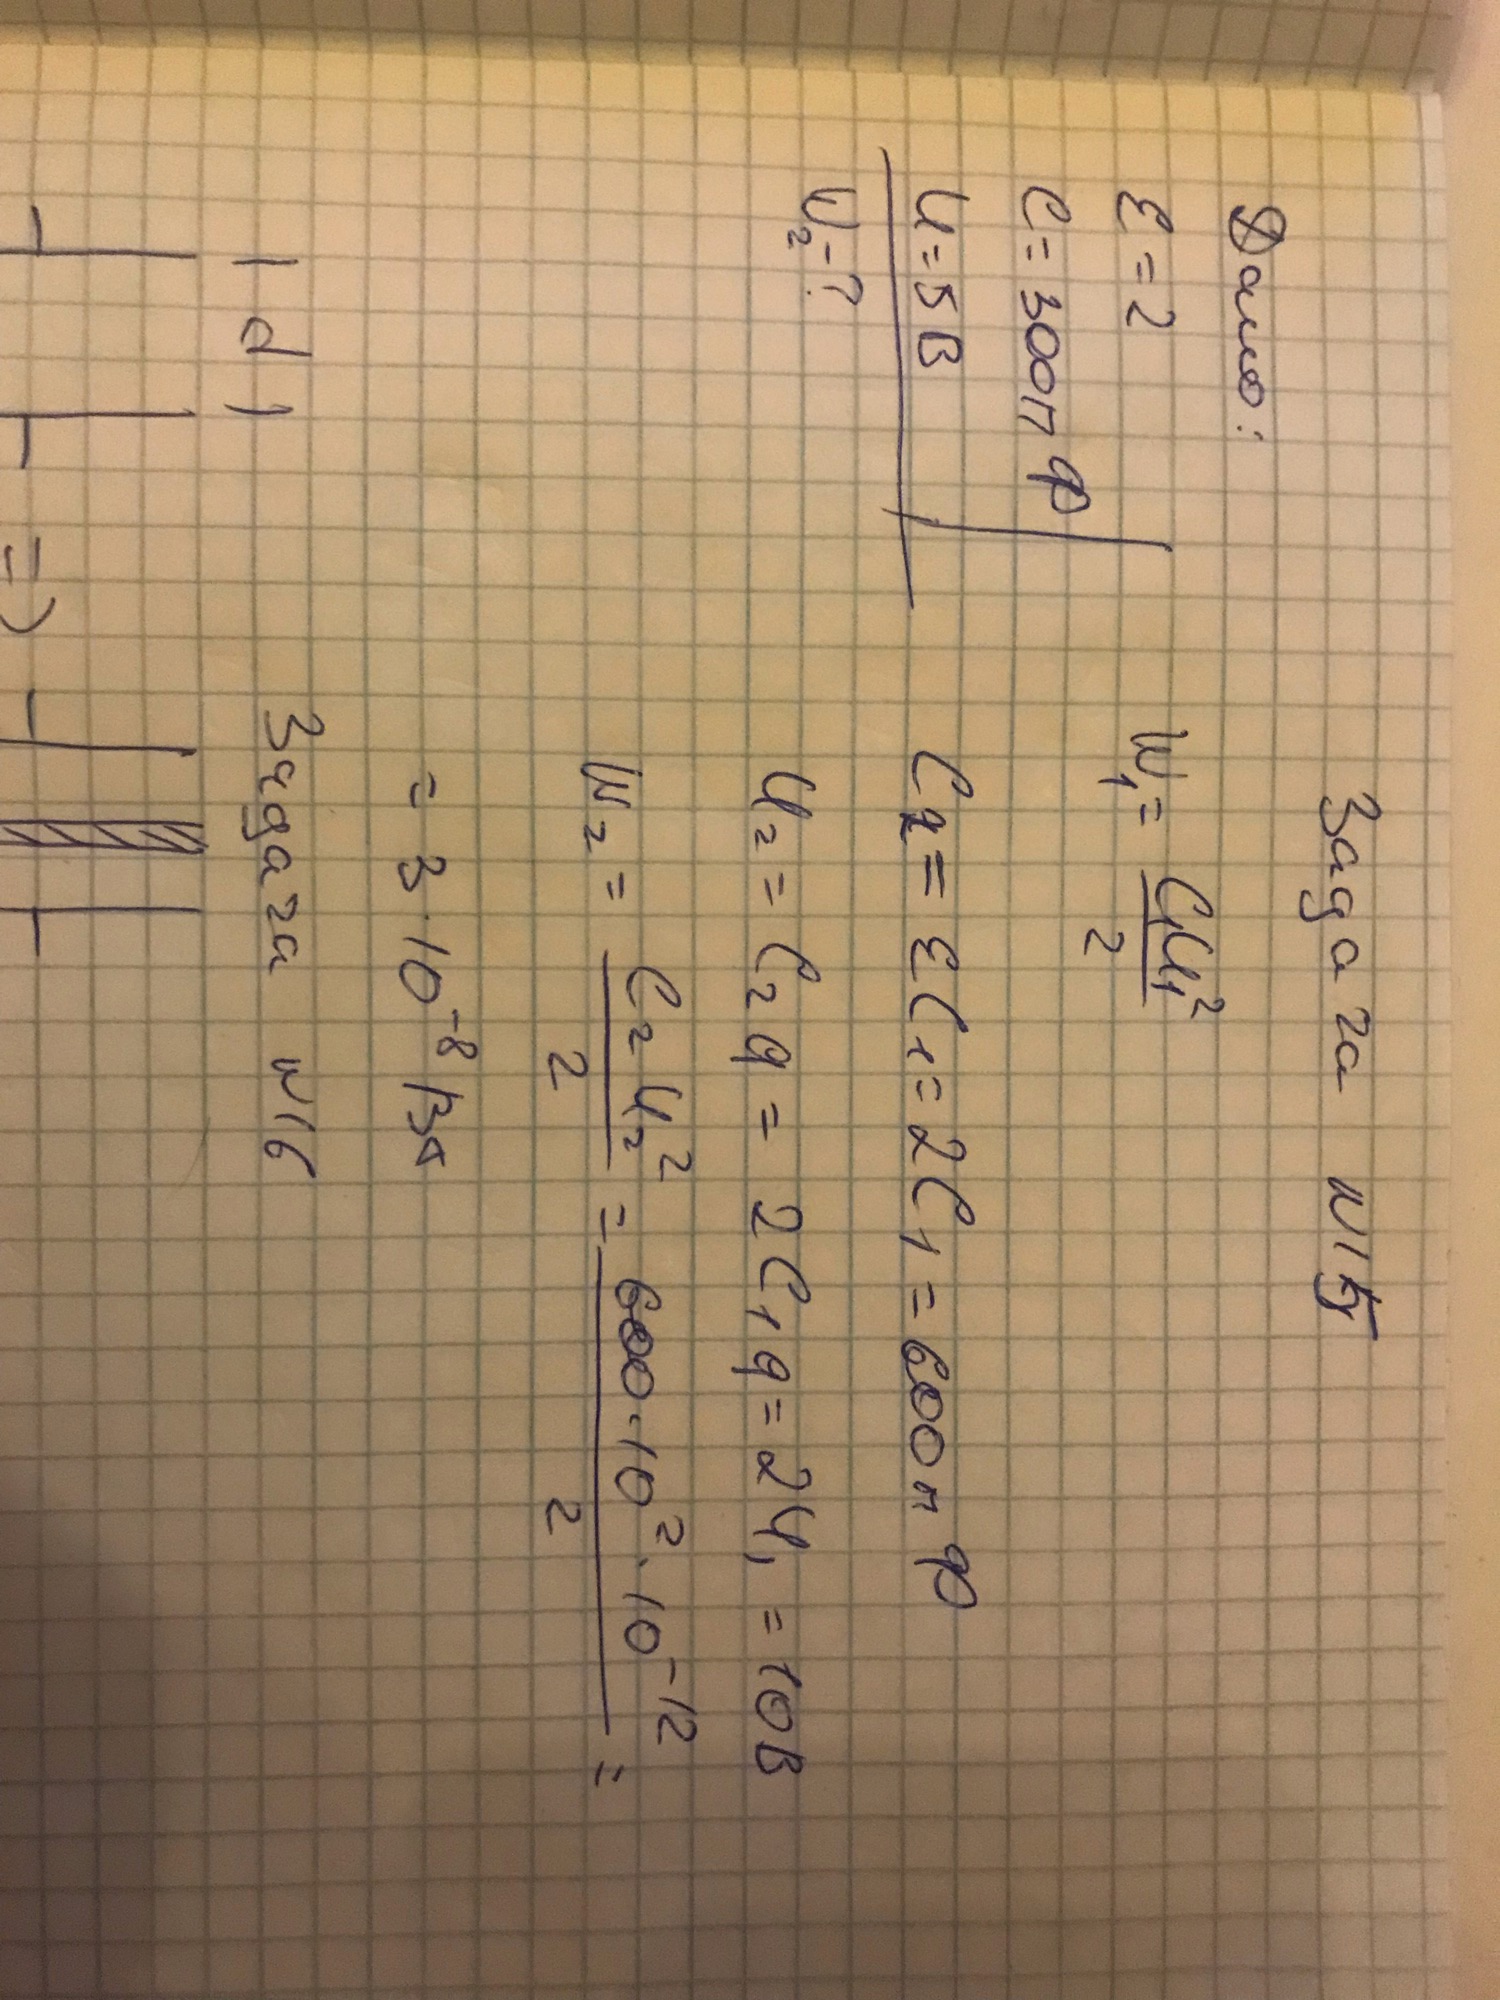 Задача N15
Дано:
ε = 2
C = 300п Ф
U = 5 В
W₂ - ?
W₁ = C₁U₁² / 2
C₂ = εC₁ = 2C₁ = 600п Ф
U₂ = C₂ q = 2C₁ q = 2U₁ = 10 В
W₂ = C₂ U₂² / 2 = 600 · 10² · 10⁻¹² / 2 =
= 3 · 10⁻⁸ Вт
Задача N16
d
=>